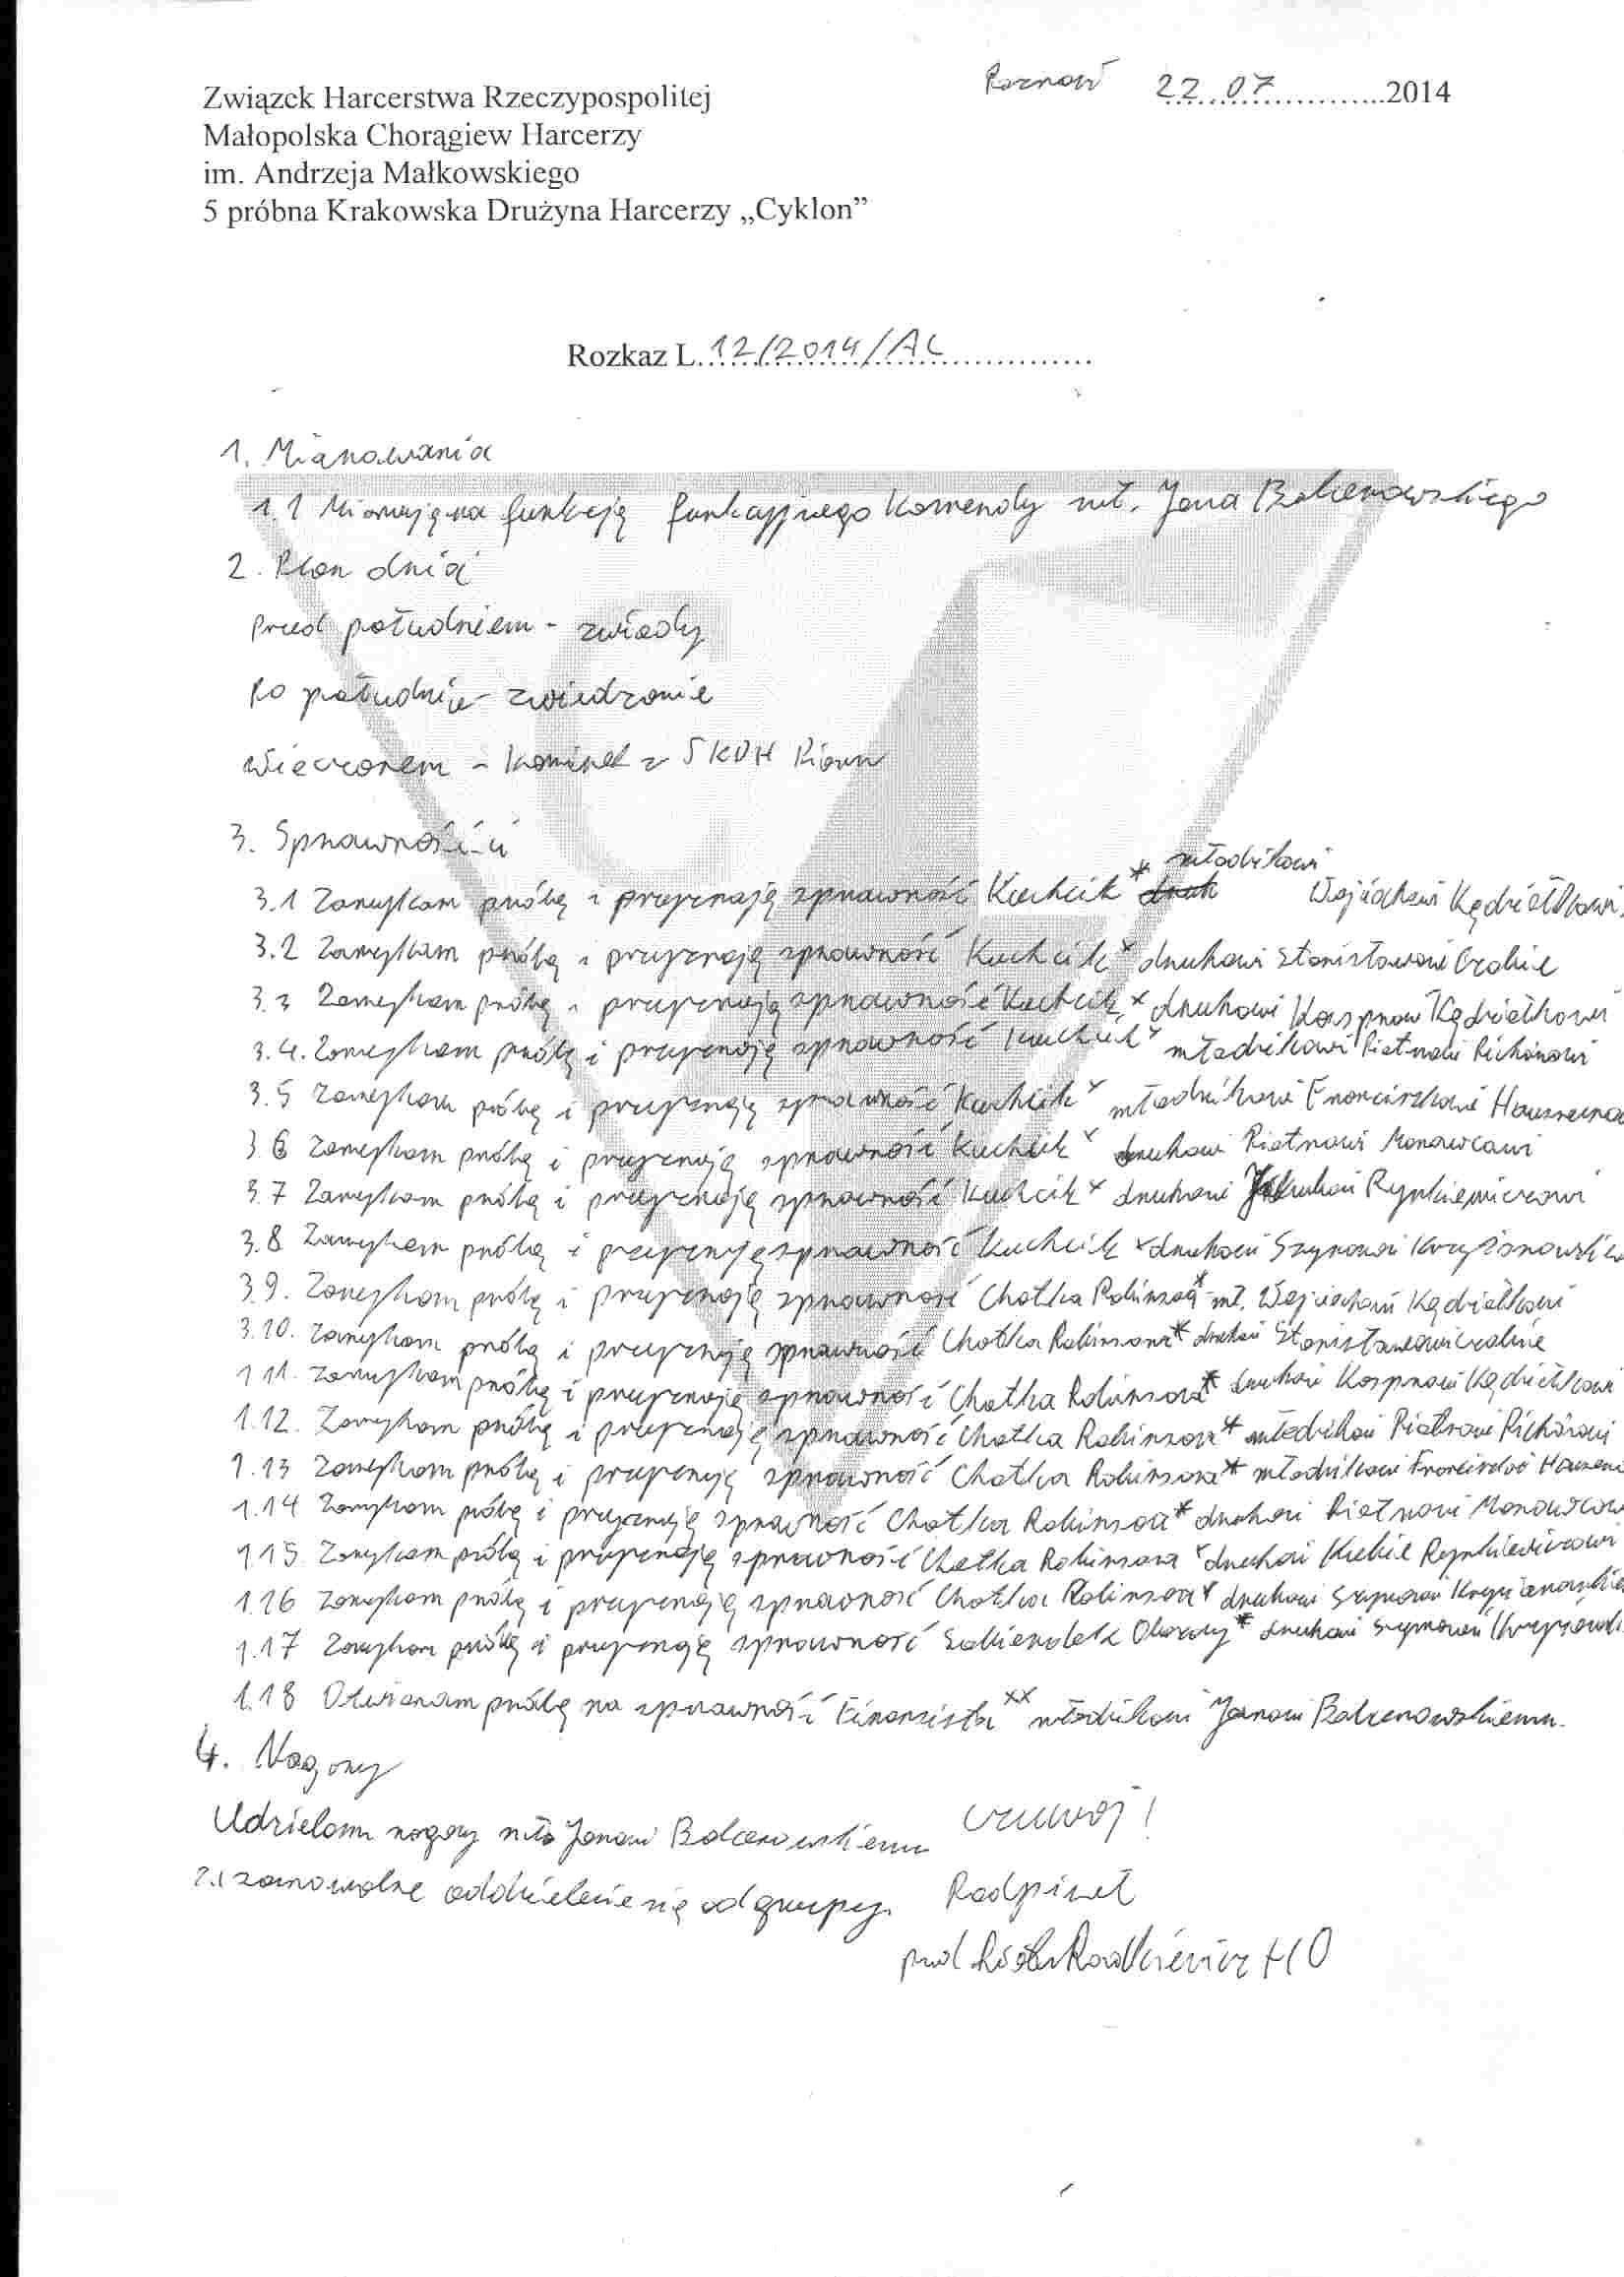 Poznań 22.07..................2014
Związek Harcerstwa Rzeczypospolitej
Małopolska Chorągiew Harcerzy
im. Andrzeja Małkowskiego
5 próbna Krakowska Drużyna Harcerzy „Cyklon”
Rozkaz L. 12/2014/AL
1. Mianowania
1.1 Mianuję na funkcję funkcyjnego komendy mł. Jana Balcerowskiego
2. Plan dnia
Przed południem - zwiady
Po południu - zwiedzanie
Wieczorem - kominek z 5 KDH Piorun
3. Sprawności
3.1 Zamykam próbę i przyznaję sprawność Kuchcik* młodzikowi Wojciechowi Kędziołkowi
3.2 Zamykam próbę i przyznaję sprawność Kuchcik* druhowi Stanisławowi
3.3 Zamykam próbę i przyznaję sprawność Kuchcik* druhowi Kacprowi Kędziołkowi
3.4. Zamykam próbę i przyznaję sprawność Kuchcik* młodzikowi Piotrowi Pichórowi
3.5 Zamykam próbę i przyznaję sprawność Kuchcik* młodzikowi Franciszkowi
3.6 Zamykam próbę i przyznaję sprawność Kuchcik* druhowi Piotrowi
3.7 Zamykam próbę i przyznaję sprawność Kuchcik* druhowi Rynkiewiczowi
3.8 Zamykam próbę i przyznaję sprawność Kuchcik* druhowi Szymonowi
3.9. Zamykam próbę i przyznaję sprawność Chatka Robinsona* mł. Wojciechowi Kędziołkowi
3.10. Zamykam próbę i przyznaję sprawność Chatka Robinsona* druhowi Stanisławowi
1.11. Zamykam próbę i przyznaję sprawność Chatka Robinsona* druhowi Kacprowi Kędziołkowi
1.12. Zamykam próbę i przyznaję sprawność Chatka Robinsona* młodzikowi Piotrowi Pichórowi
1.13 Zamykam próbę i przyznaję sprawność Chatka Robinsona* młodzikowi
1.14 Zamykam próbę i przyznaję sprawność Chatka Robinsona* druhowi Piotrowi
1.15 Zamykam próbę i przyznaję sprawność Chatka Robinsona* druhowi Rynkiewiczowi
1.16 Zamykam próbę i przyznaję sprawność Chatka Robinsona* druhowi Szymonowi
1.17 Zamykam próbę i przyznaję sprawność Obozowy* druhowi Szymonowi
1.18 Otwieram próbę na sprawność Finansista** młodzikowi Janowi Balcerowskiemu.
4. Nagany
Udzielam nagany mło Janowi Balcerowskiemu
za samowolne oddzielenie się od grupy.
Czuwaj!
Podpisał
pwd. Radkiewicz HO